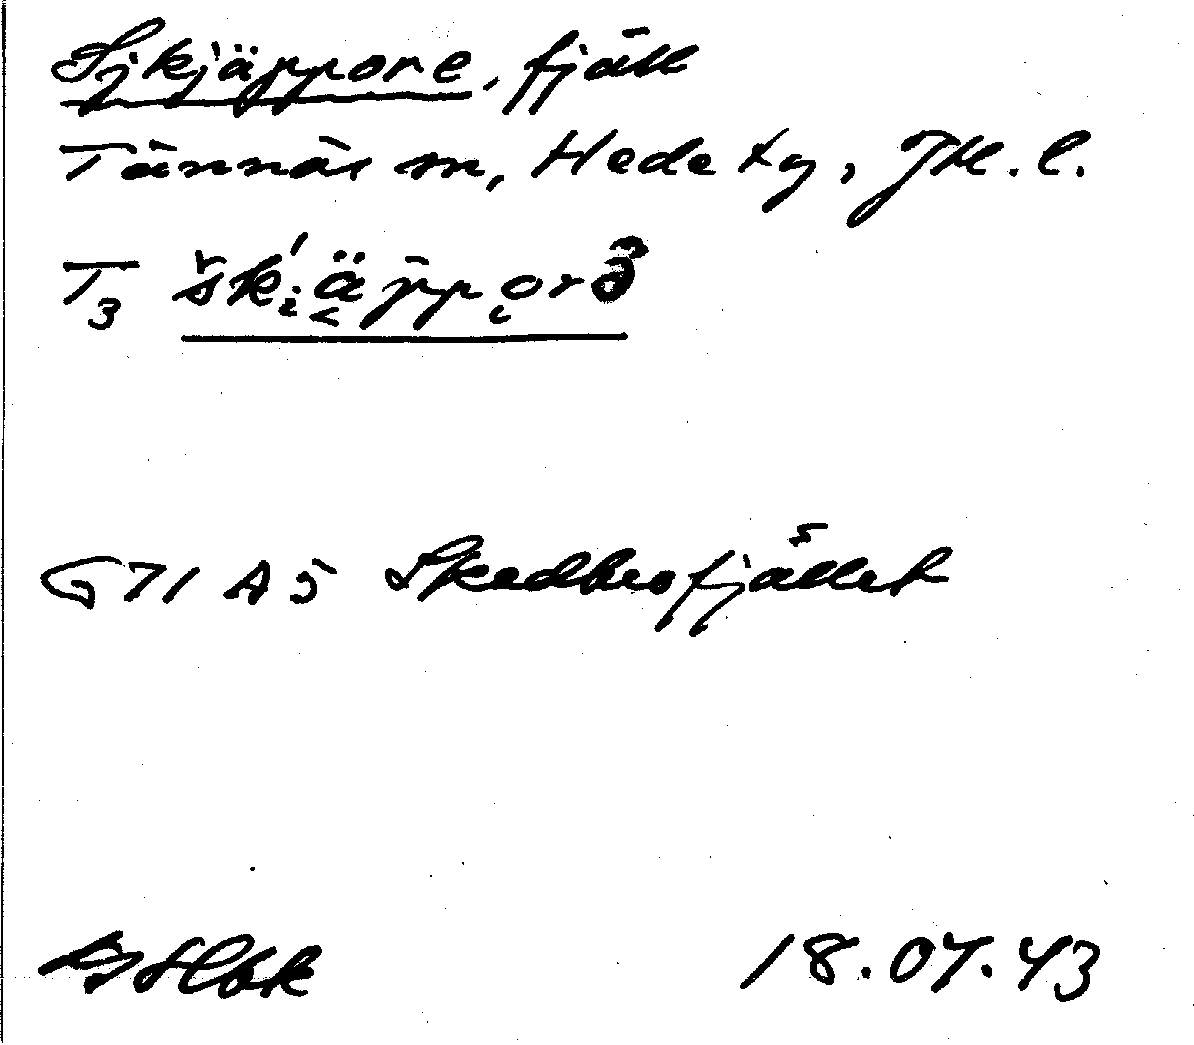 Sjkjäppore, fjäll
Tännäs sn, Hede tg, Jtl. l.
T3 šk'i̯äppo̜rɜ
G71 A5 Skedbrofjället
18.07.43